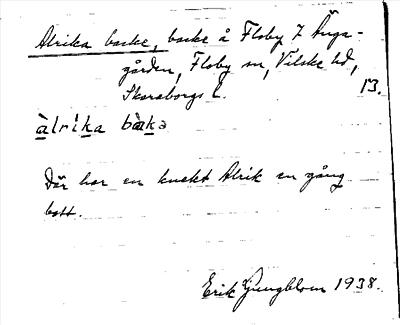 Alrika backe, backe å Floby 7 Änga-
gården, Floby sn, Vilske hd,
Skaraborgs l. 13.
àlrika bàka
Där har en knekt Alrik en gång
bott.
Erik Ljungblom 1938.